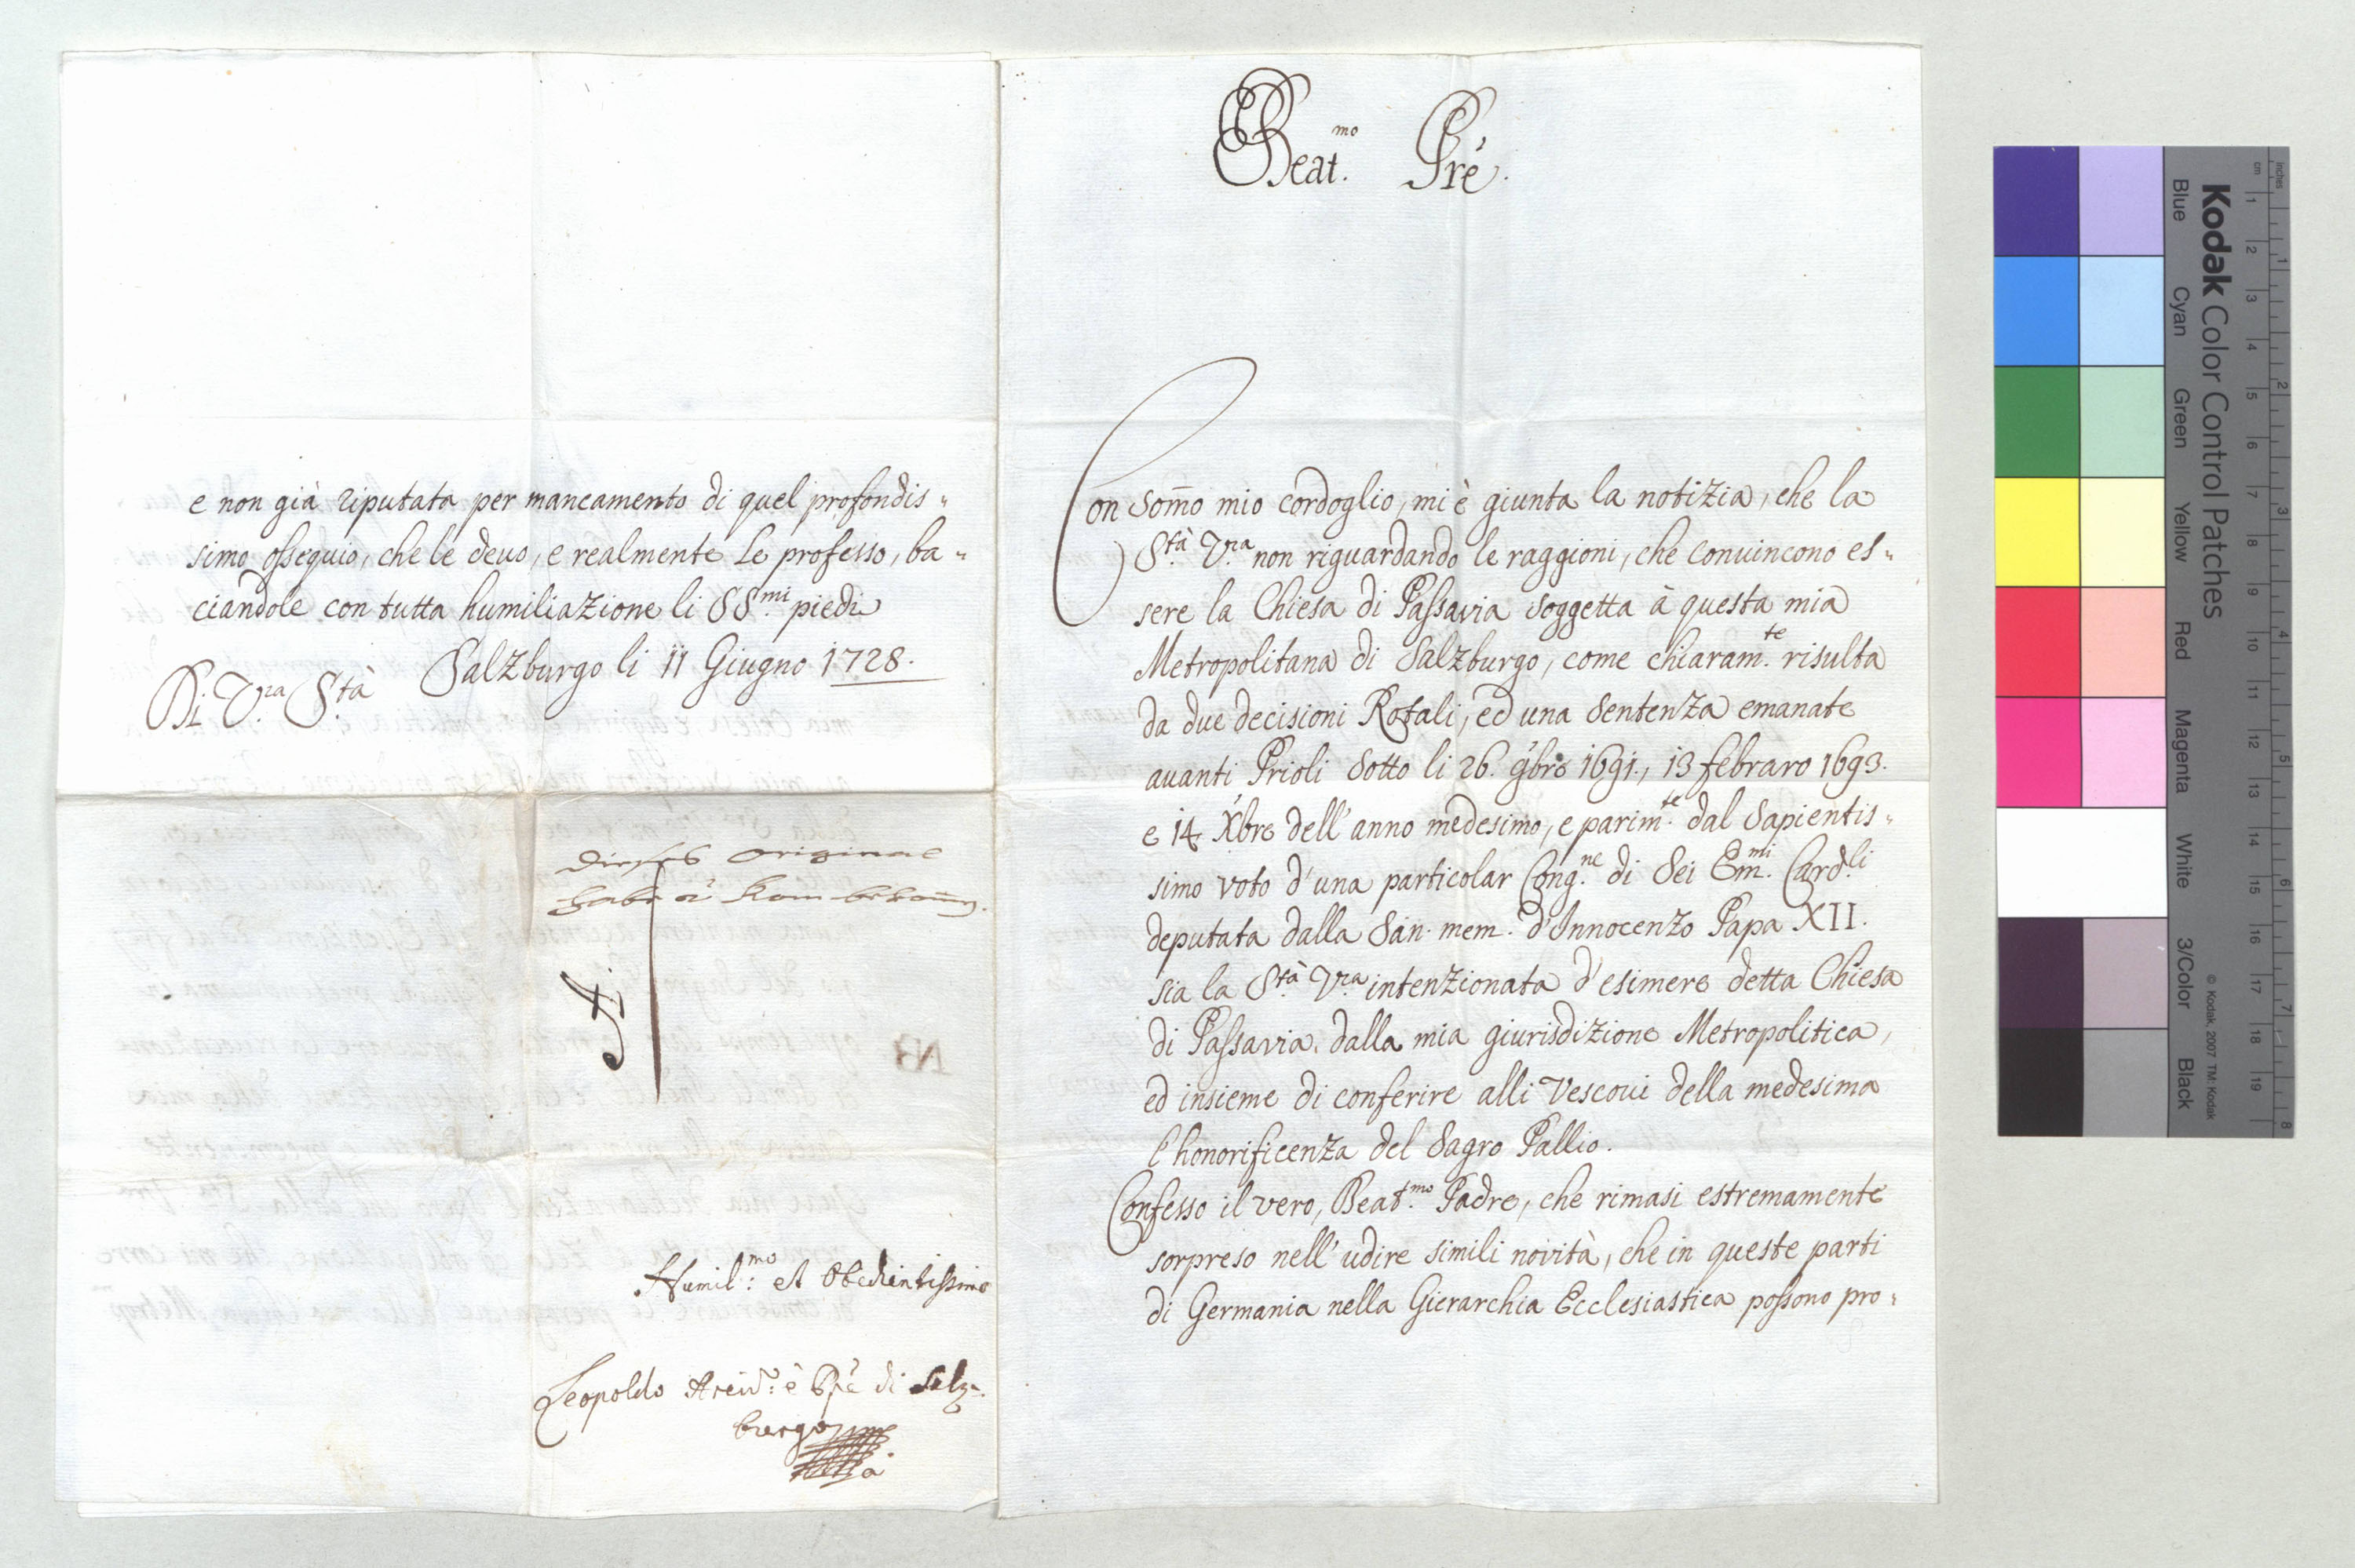 e non già riputata per mancamento di quel profondis„
simo ossequio, che le deuo, e realmente Le professo, ba„
ciandole con tutta humiliazione li SS.mi piedi
Salzburgo li 11 Giugno 1728.
Di V.ra S.tà
dieses Original
habe à Rom bekom̄en.
A.
NB
Humil:mo et Obedientissimo
Leopoldo Arciv.o è Pr̃e di Salz„
burgo
Beat.mo Prẽ.
Con som̄o mio cordoglio, mi è giunta la notizia, che la
S.tà V.ra non riguardando le raggioni, che conuincono es„
sere la Chiesa di Passavia soggetta à questa mia
Metropolitana di Salzburgo, come chiaram.te risulta
da due decisioni Rotali, ed una sentenza emanate
auanti Prioli sotto li 26. 9bre 1691., 13 febraro 1693.
e 14 Xbre dell'anno medesimo, e parim.te dal sapientis„
simo voto d'una particolar Cong.ne di sei Em.mi Card.li
deputata dalla san. mem. d'Innocenzo Papa XII.
sia la S.tà V.ra intenzionata d'esimere detta Chiesa
di Passavia dalla mia giurisdizione Metropolitica,
ed insieme di conferire alli Vescoui della medesima
l'honorificenza del Sagro Pallio.
Confesso il vero, Beat.mo Padre, che rimasi estremamente
sorpreso nell'udire simili novità, che in queste parti
di Germania nella Gierarchia Ecclesiastica possono pro„
Kodak Color Control Patches
Blue Cyan Green Yellow Red Magenta White 3/Color Black
© Kodak, 2007 TM: Kodak
cm 1 2 3 4 5 6 7 8 9 10 11 12 13 14 15 16 17 18 19
Inches 1 2 3 4 5 6 7 8